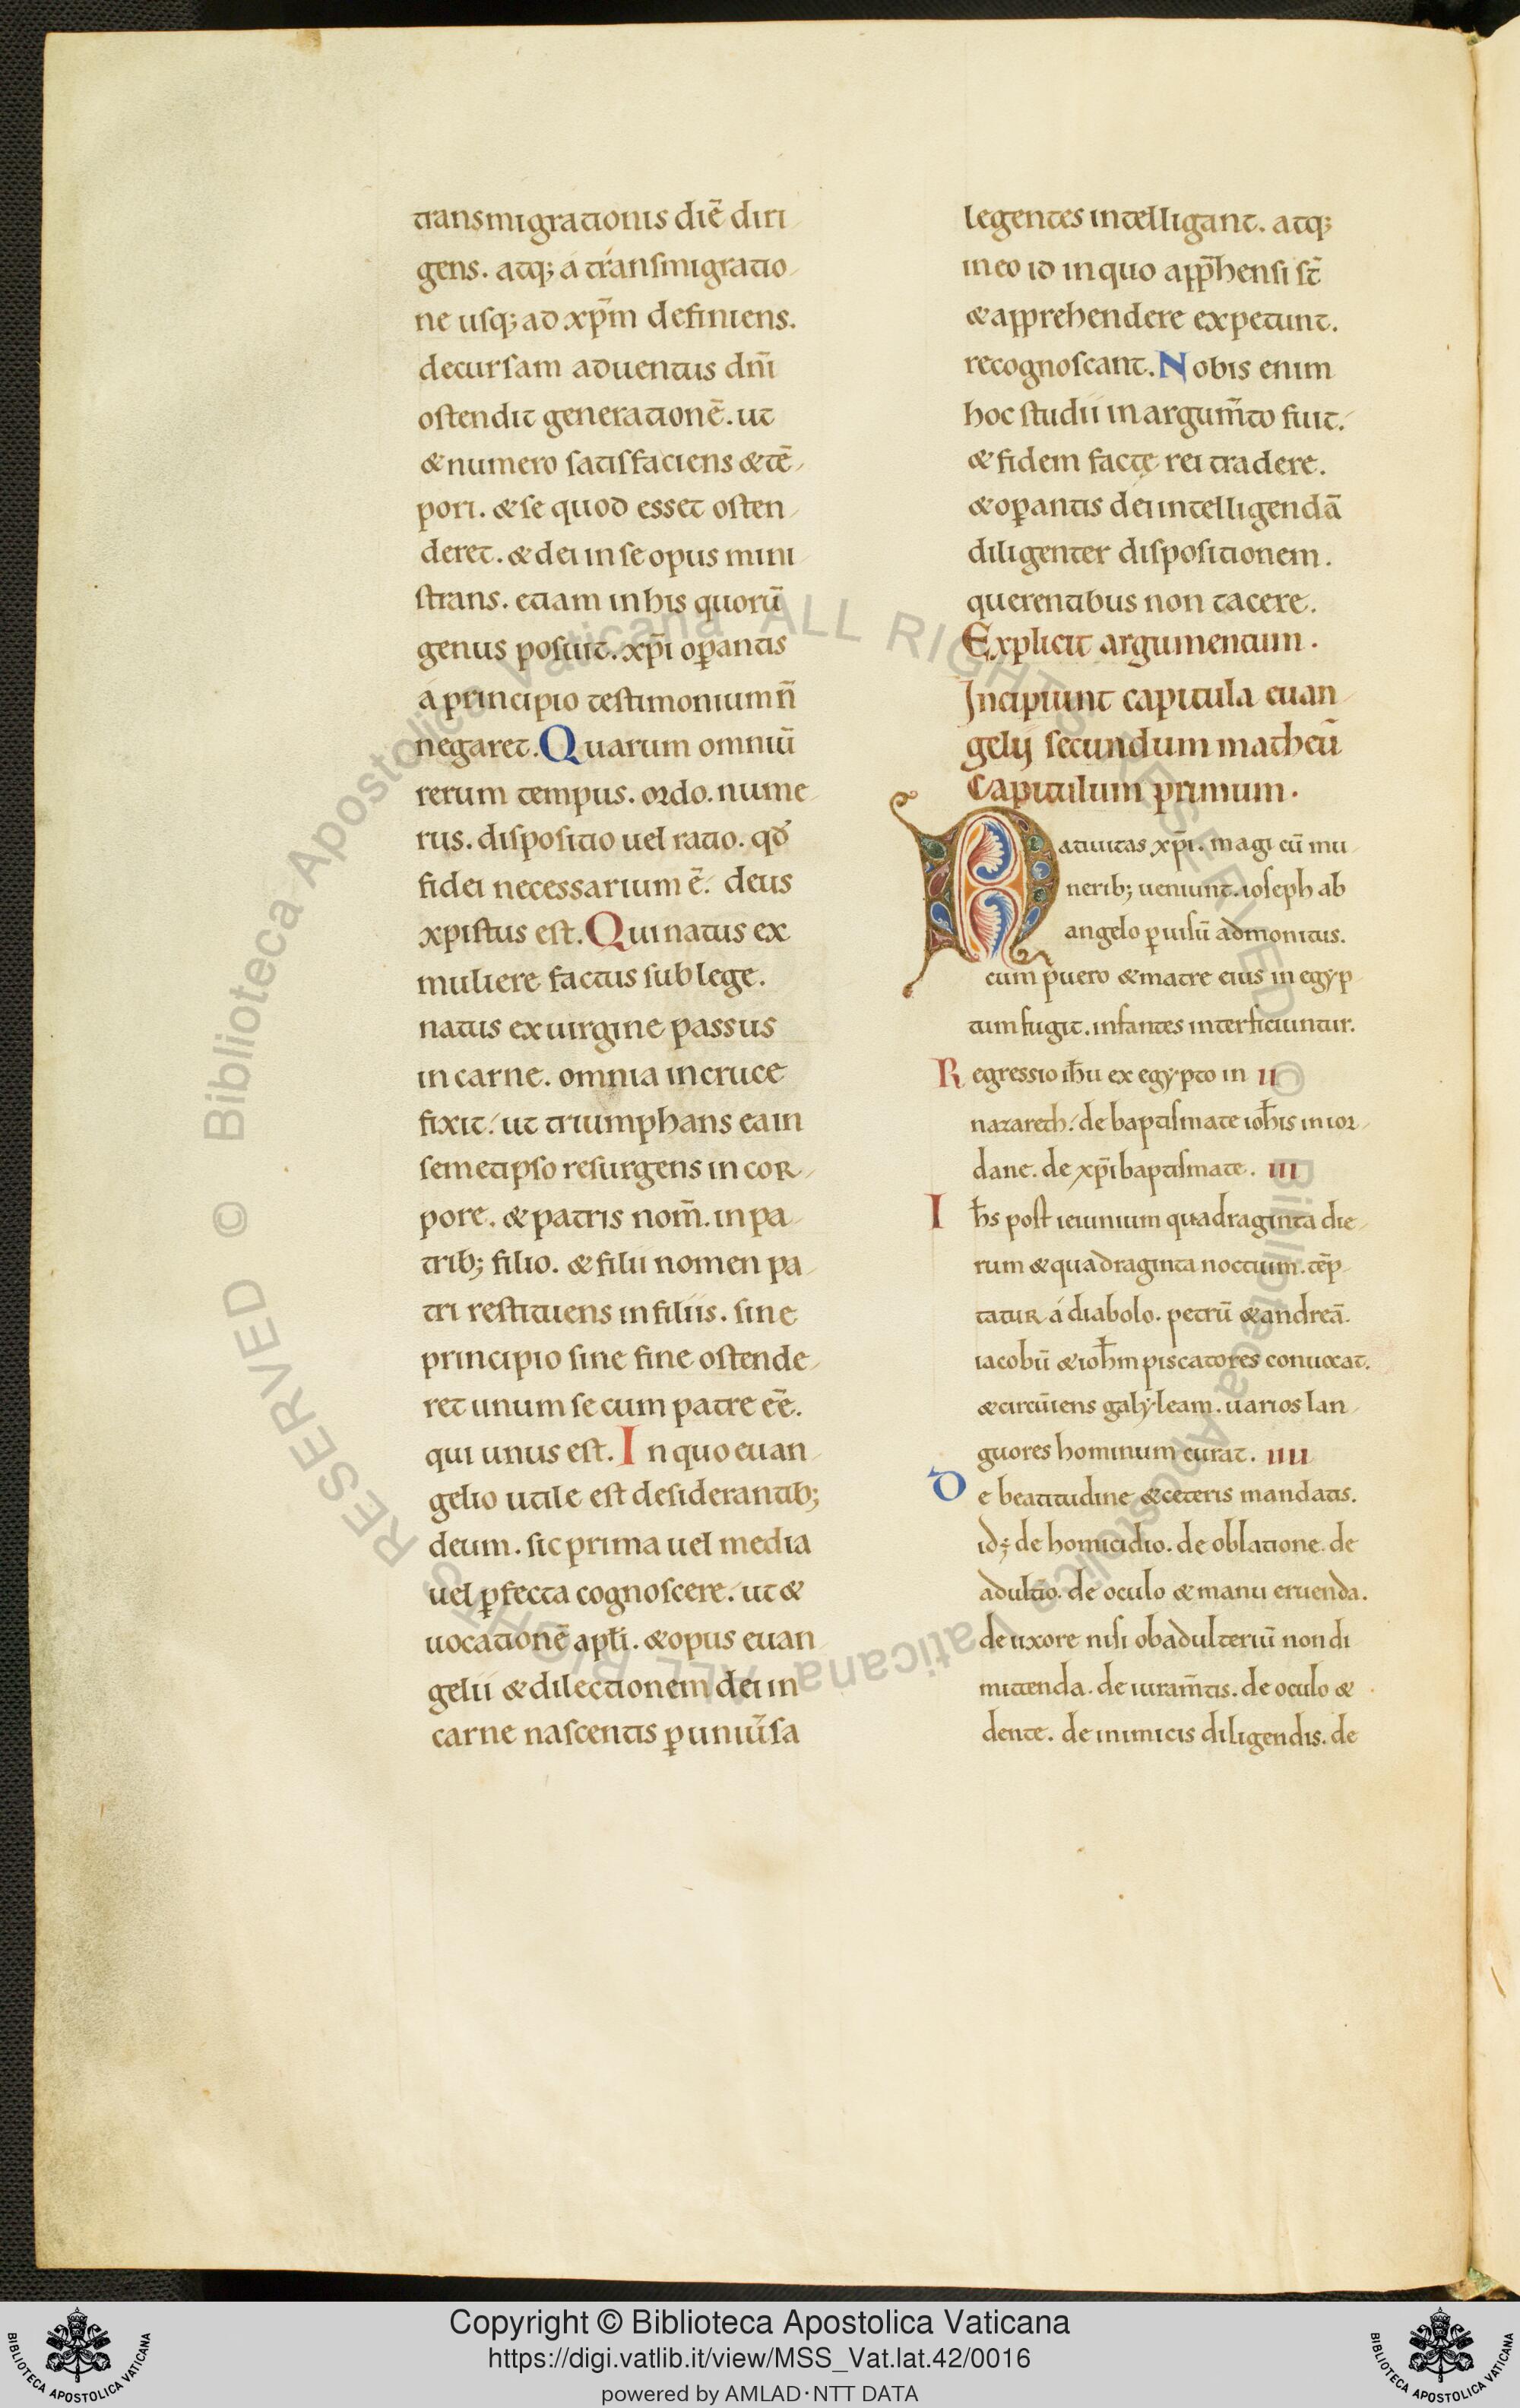 transmigrationis diē diri
gens. atq; á transmigratio
ne usq; ad xp̄m definiens.
decursam aduentus dn̄i
ostendit generationē. ut
& numero satisfaciens & tē
pori. & se quod esset osten
deret. & dei in se opus mini
strans. etiam in his quorū
genus posuit. xp̄i oꝑantis
á principio testimonium n̄
negaret. Quarum omniū
rerum tempus. ordo. nume
rus. dispositio uel ratio. qđ
fidei necessarium ē. deus
xpistus est. Qui natus ex
muliere factus sub lege.
natus ex uirgine passus
in carne. omnia in cruce
fixit. ut triumphans ea in
semetipso resurgens in cor
pore. & patris nom̄. in pa
trib; filio. & filii nomen pa
tri restituens in filiis. sine
principio sine fine ostende
ret unum se cum patre eē.
qui unus est. In quo euan
gelio utile est desiderantib;
deum. sic prima uel media
uel ꝑfecta cognoscere. ut &
uocationē apl̄i. & opus euan
gelii & dilectionem dei in
carne nascentis ꝑ uniūsa
legentes intelligant. atq;
in eo id in quo app̄hensi st̄
& apprehendere expetunt.
recognoscant. Nobis enim
hoc studii in argum̄to fuit.
& fidem factę rei tradere.
& oꝑantis dei intelligendā
diligenter dispositionem.
querentibus non tacere.
Explicit argumentum.
Incipiunt capitula euan
gelij secundum matheū
Capitulum primum.
Natiuitas xp̄i. magi cū mu
nerib; ueniunt. ioseph ab
angelo ꝑ uisū admonitus.
cum puero & matre eius in egyp
tum fugit. infantes interficiuntur.
Regressio ih̄u ex egypto in II
nazareth. de baptismate ioh̄is in ior
dane. de xp̄i baptismate. III
Ih̄s post ieiunium quadraginta die
rum & quadraginta noctium. tēp
tatur á diabolo. petrū & andreā.
iacobū & ioh̄m piscatores conuocat.
& circūiens galyleam. uarios lan
guores hominum curat. IIII
De beatitudine & ceteris mandatis.
id; de homicidio. de oblatione. de
adult̄io. de oculo & manu eruenda.
de uxore nisi ob adulteriū non di
mittenda. de iuram̄tis. de oculo &
dente. de inimicis diligendis. de
Copyright © Biblioteca Apostolica Vaticana
https://digi.vatlib.it/view/MSS_Vat.lat.42/0016
powered by AMLAD·NTT DATA
BIBLIOTECA APOSTOLICA VATICANA
BIBLIOTECA APOSTOLICA VATICANA
© Biblioteca Apostolica Vaticana ALL RIGHTS RESERVED © Biblioteca Apostolica Vaticana ALL RIGHTS RESERVED